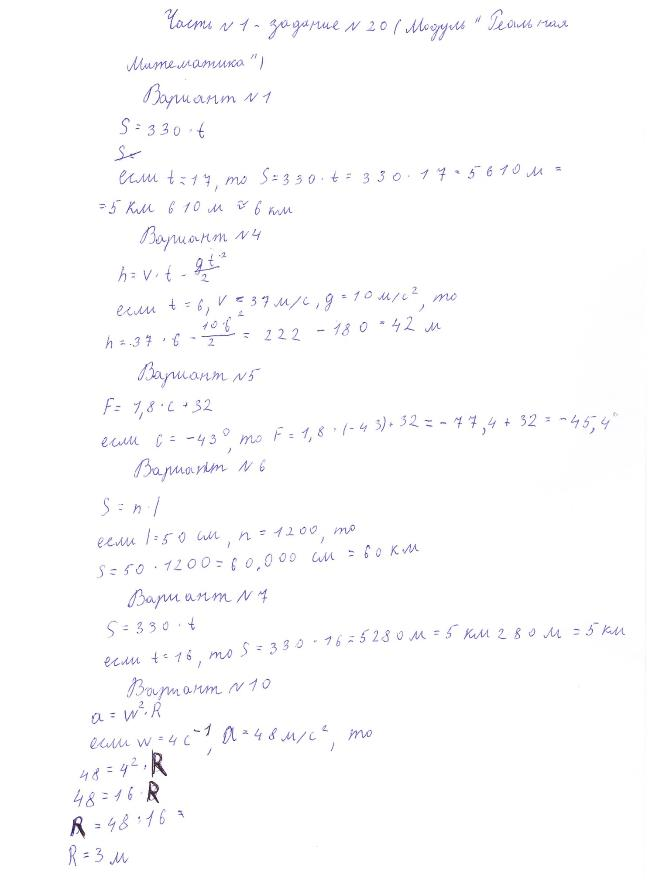 Часть № 1 - задание № 20 ( Модуль " Реальная
Математика")
Вариант № 1
S = 330 · t
S =
если t = 17, то S = 330 · t = 330 · 17 = 5610 м =
= 5 км 610 м ≈ 6 км
Вариант № 4
h = v · t - gt²/2
если t = 6, v = 37 м/с, g = 10 м/с², то
h = 37 · 6 - 10·6²/2 = 222 - 180 = 42 м
Вариант № 5
F = 1,8 · c + 32
если c = -43°, то F = 1,8 · (-43) + 32 = -77,4 + 32 = -45,4°
Вариант № 6
S = n · l
если l = 50 см, n = 1200, то
S = 50 · 1200 = 60,000 см = 60 км
Вариант № 7
S = 330 · t
если t = 16, то S = 330 · 16 = 5280 м = 5 км 280 м = 5 км
Вариант № 10
a = w² · R
если w = 4 с⁻¹, a = 48 м/с², то
48 = 4² · R
48 = 16 · R
R = 48 : 16 =
R = 3 м